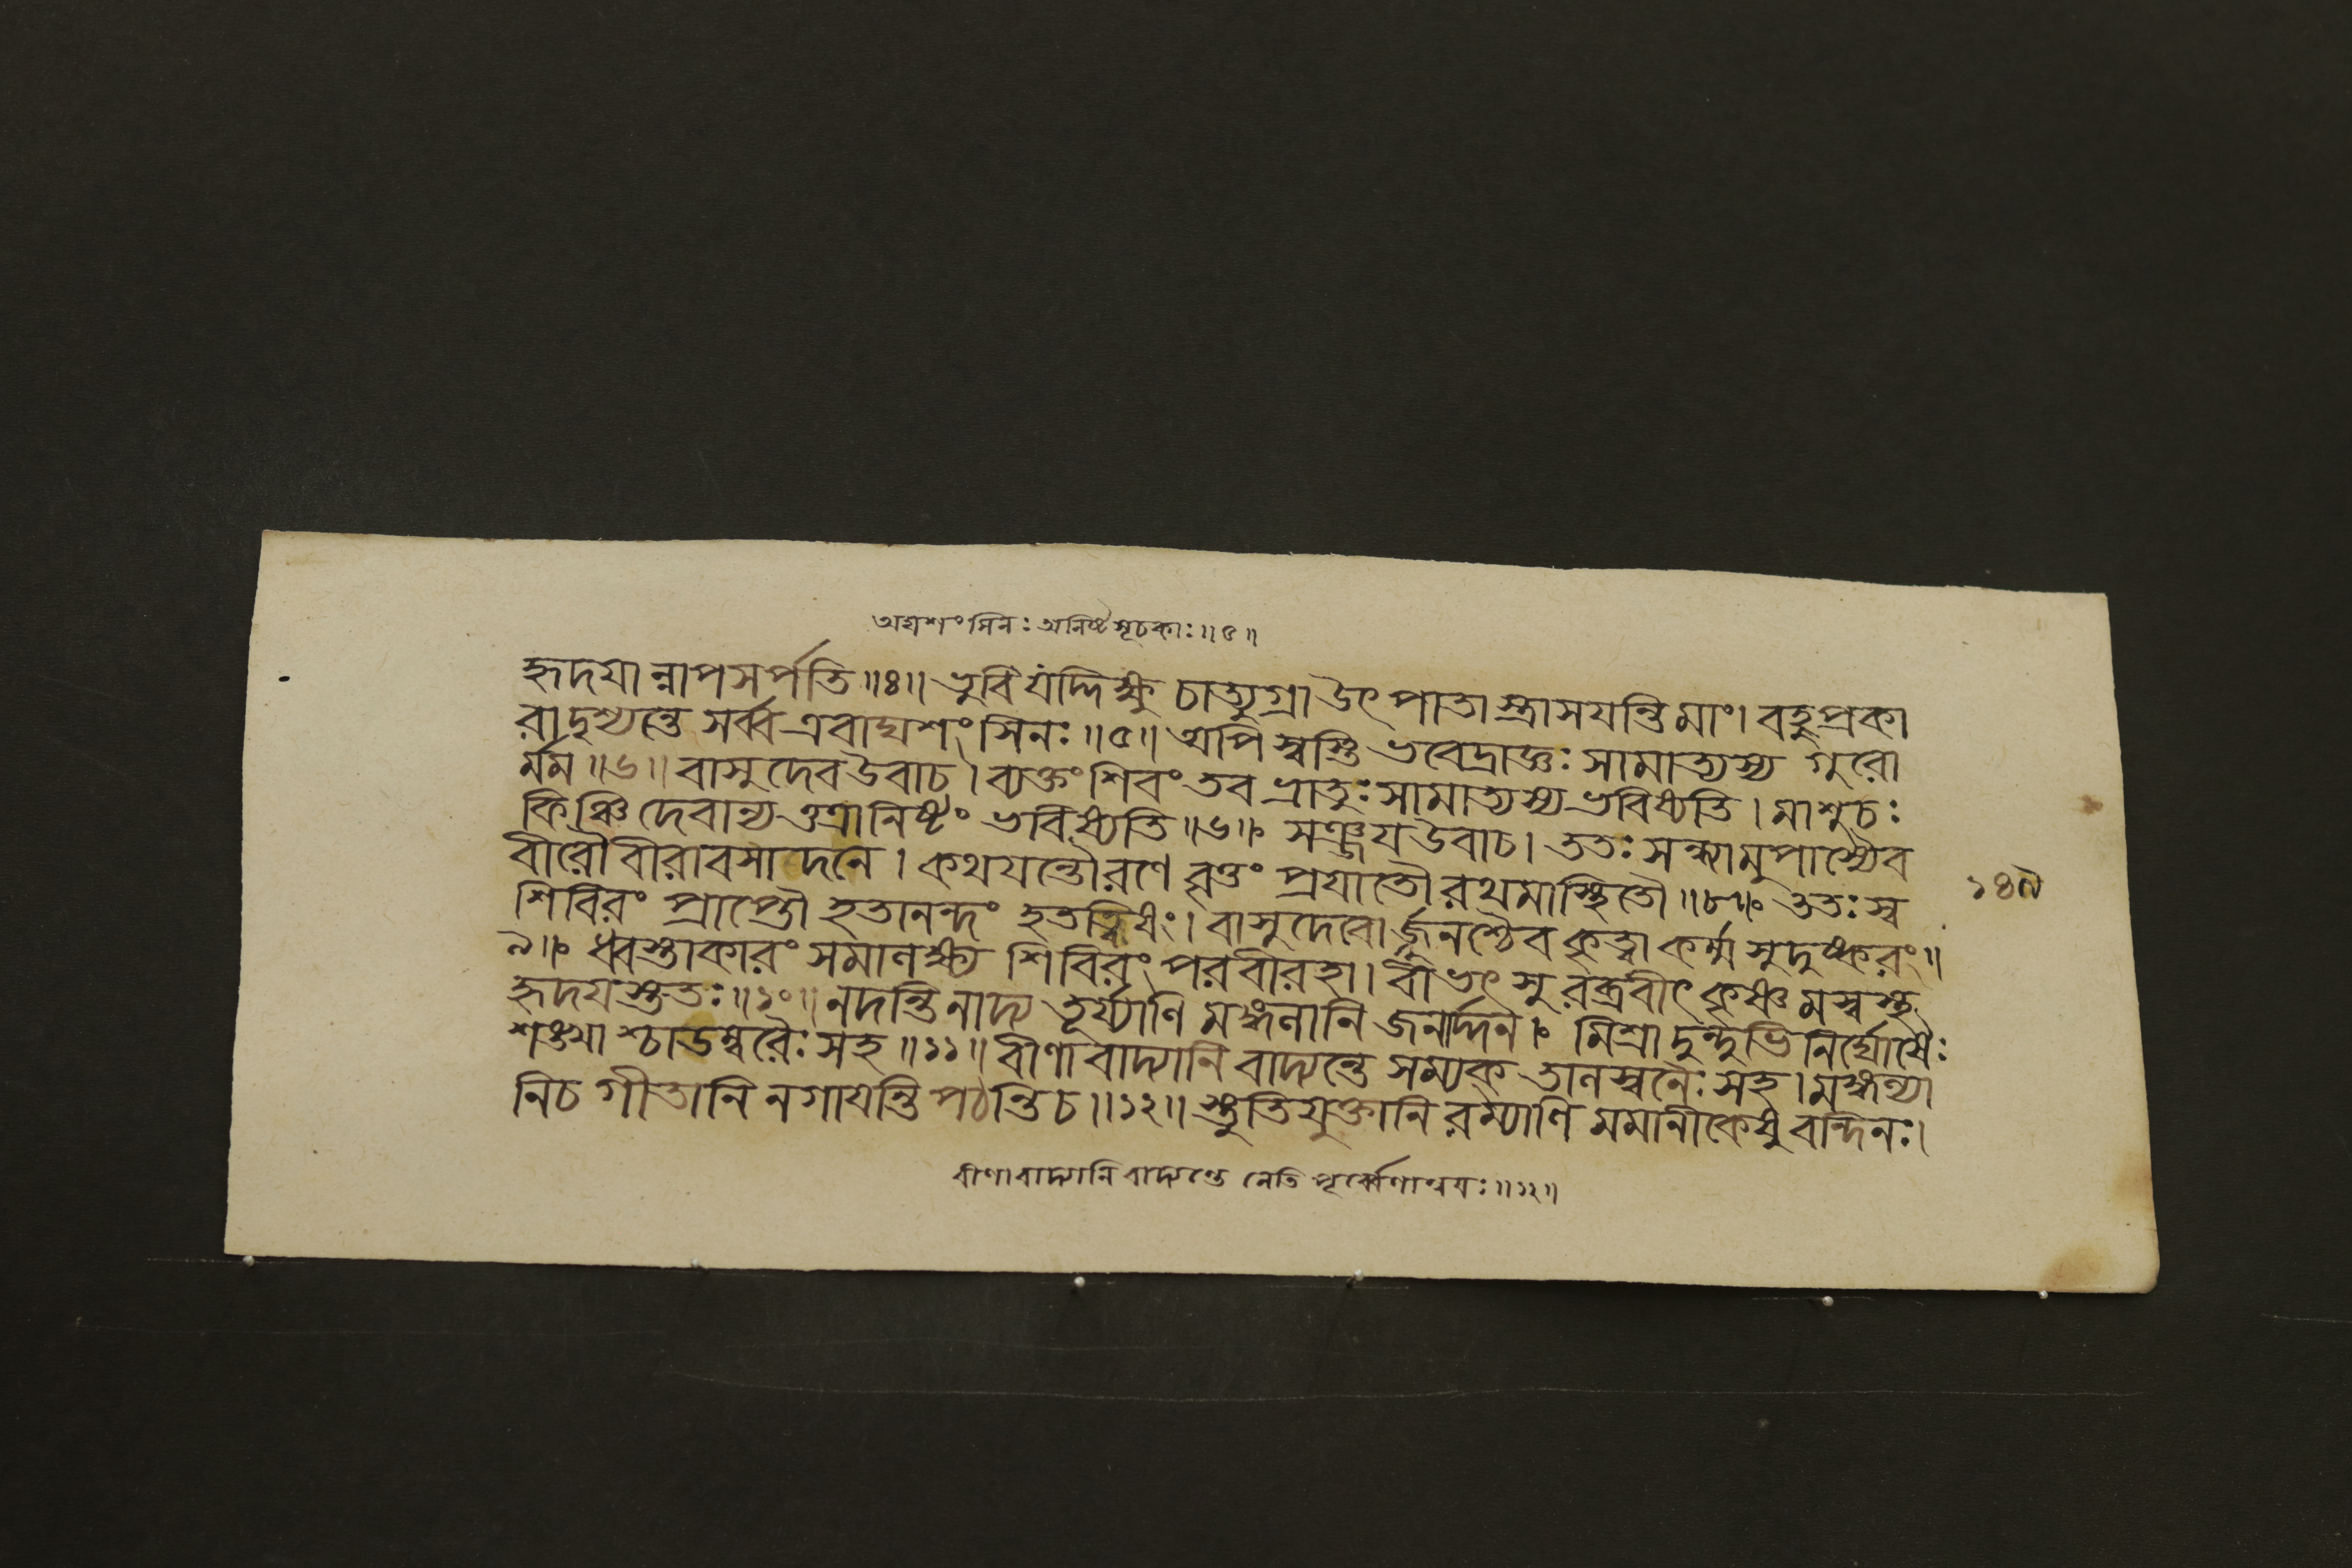 অঘশংসিনঃ অনিষ্টসূচকাঃ॥৫॥
হৃদযান্নাপসর্পতি॥৪॥ভুবি যদ্দিক্ষু চাত্যুগ্রা উৎপাতাস্ত্রাসযন্তি মাং। বহুপ্রকা
রা দৃশ্যন্তে সর্ব্ব এবাঘশংসিনঃ॥৫॥অপি স্বস্তি ভবেদ্রাজ্ঞঃ সামাত্যস্য গুরো
র্মম॥৬॥বাসুদেব উবাচ। ব্যক্তং শিবং তব ভ্রাতুঃ সামাত্যস্য ভবিষ্যতি। মা শুচঃ
কিঞ্চিদেবান্যত্তত্রানিষ্টং ভবিষ্যতি॥৬॥ সঞ্জয উবাচ। ততঃ সন্ধ্যামুপাস্যৈব
বীরৌ বীরাবসাদনে। কথযন্তৌ রণে বৃত্তং প্রযাতৌ রথমাস্থিতৌ॥৮॥ ততঃ স্ব
১৪৭
শিবিরং প্রাপ্তৌ হতানন্দং হতত্বিষং। বাসুদেবোর্জ্জুনশ্চৈব কৃত্বা কর্ম্ম সুদুষ্করং॥
৯॥ ধ্বস্তাকারং সমালক্ষ্য শিবিরং পরবীরহা। বীভৎসুরব্রবীৎ কৃষ্ণমস্বস্থ
হৃদযস্ততঃ॥১০॥নদন্তি নাদ্য তূর্য্যাণি মঙ্গলানি জনার্দ্দন। মিশ্রা দুন্দুভিনির্ঘোষৈঃ
শঙ্খাশ্চাডম্বরৈঃ সহ॥১১॥বীণা বাদ্যানি বাদ্যন্তে সম্যক্ তালস্বনৈঃ সহ। মঙ্গল্যা
নি চ গীতানি ন গাযন্তি পঠন্তি চ॥১২॥স্তুতিযুক্তানি রম্যাণি মমানীকেষু বন্দিনঃ।
বীণাবাদ্যানি বাদ্যন্তে নেতি পূর্ব্বেণান্বযঃ॥১২॥